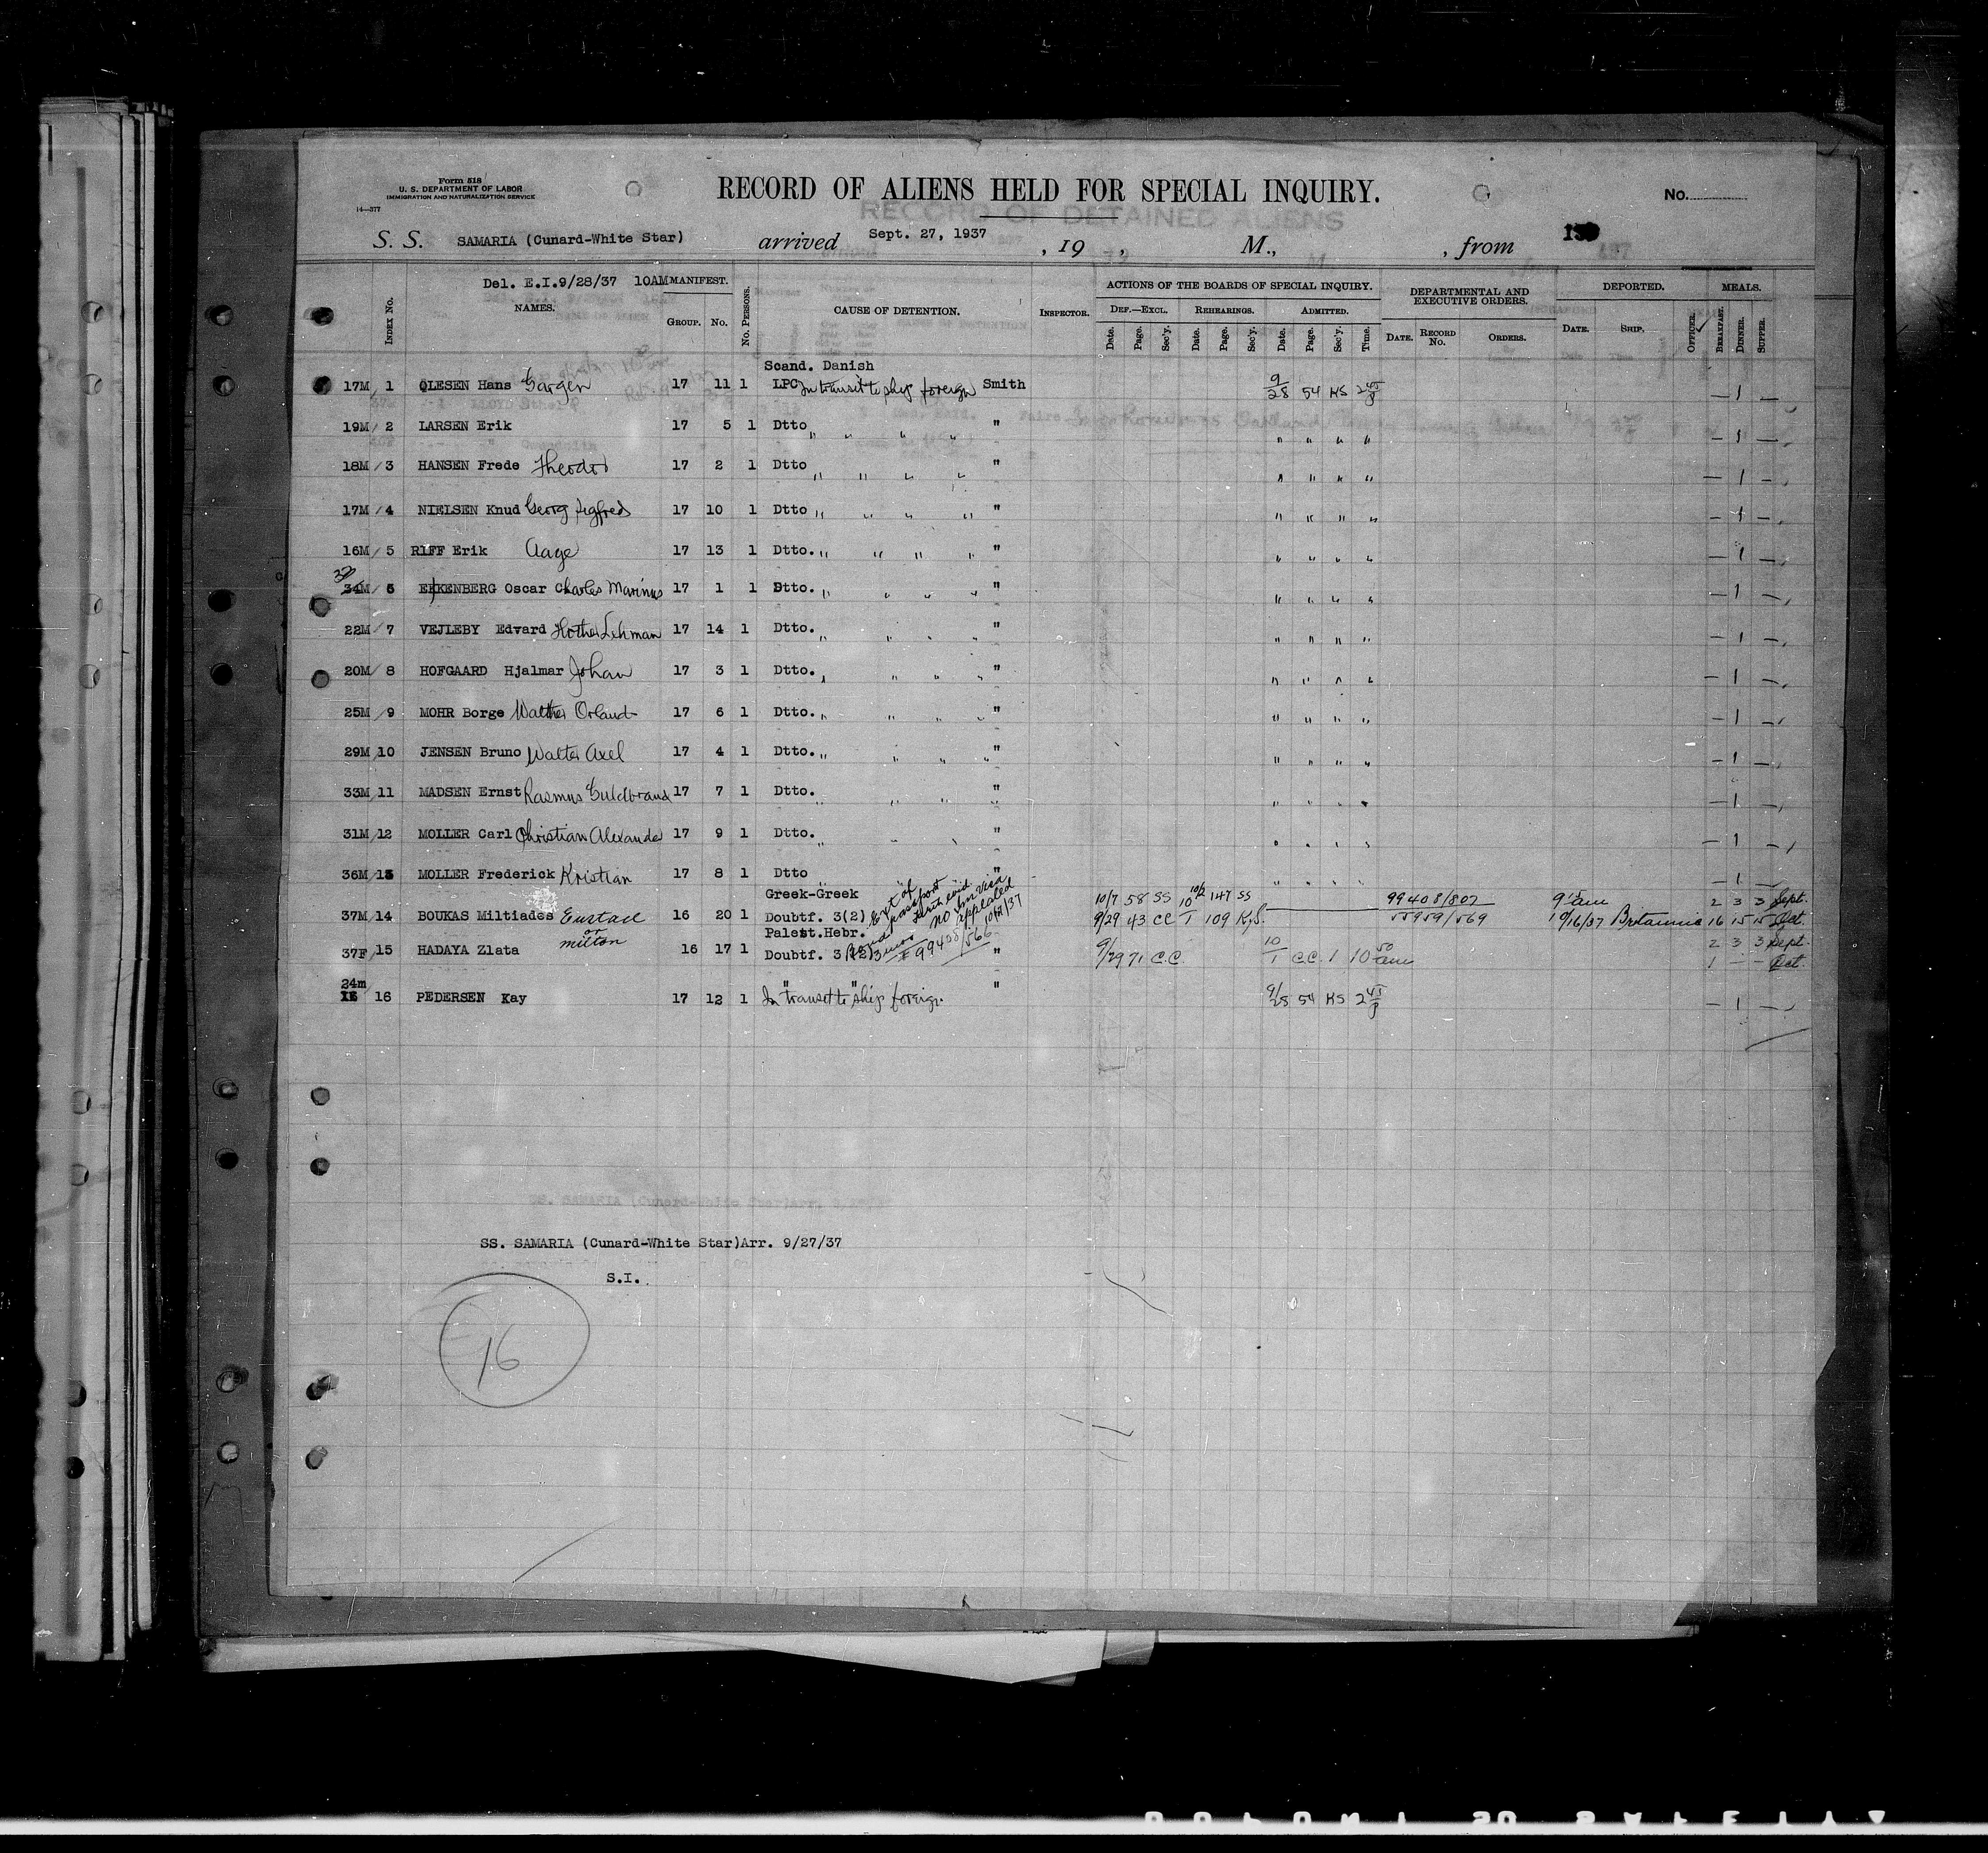 Form 518
U. S. DEPARTMENT OF LABOR
IMMIGRATION AND NATURALIZATION SERVICE
14—377
RECORD OF ALIENS HELD FOR SPECIAL INQUIRY.
No.
RECORD OF DETAINED ALIENS
S. S. SAMARIA (Cunard-White Star) arrived Sept. 27, 1937 , 19 , M., , from
Del. E.I.9/28/37 10AM
INDEX No. NAMES. MANIFEST. GROUP. No. No. PERSONS. CAUSE OF DETENTION. INSPECTOR. ACTIONS OF THE BOARDS OF SPECIAL INQUIRY. DEPARTMENTAL AND EXECUTIVE ORDERS. DEPORTED. MEALS.
DEF.—EXCL. REHEARINGS. ADMITTED.
Date. Page. Sec'y. Date. Page. Sec'y. Date. Page. Sec'y. Time. DATE. RECORD No. ORDERS. DATE. SHIP. OFFICER. BREAKFAST. DINNER. SUPPER.
Scand. Danish
17M 1 OLESEN Hans 17 11 1 LPC In transit to ship foreign Smith 9/28 54 KS 2 45/P — 1 —
19M/ 2 LARSEN Erik 17 5 1 Dtto " " " " " " " " " — 1 —
18M/ 3 HANSEN Frede Theodor 17 2 1 Dtto " " " " " " " " " — 1 —
17M / 4 NIELSEN Knud Georg Sigfred 17 10 1 Dtto " " " " " " " " " — 1 —
16M/ 5 RIFF Erik Aage 17 13 1 Dtto. " " " " " " " " " — 1 —
34M/ 6 EKKENBERG Oscar Charles Marinus 17 1 1 Dtto. " " " " " " " " " — 1 —
22M/ 7 VEJLEBY Edvard Hother Lehman 17 14 1 Dtto. " " " " " " " " — 1 —
20M/ 8 HOFGAARD Hjalmar Johan 17 3 1 Dtto. " " " " " " " " " — 1 —
25M/ 9 MOHR Borge Walther Orland 17 6 1 Dtto. " " " " " " " " " — 1 —
29M/ 10 JENSEN Bruno Walter Axel 17 4 1 Dtto. " " " " " " " " — 1 —
33M/ 11 MADSEN Ernst Rasmus Guldbrand 17 7 1 Dtto. " " " " " " " " " — 1 —
31M/ 12 MOLLER Carl Christian Alexander 17 9 1 Dtto. " " " " " " " " — 1 —
36M/ 13 MOLLER Frederick Kristian 17 8 1 Dtto " " " " " — 1 —
Greek-Greek
10/7 58 SS 10/12 147 SS 99408/802 9 15 am 2 3 3 Sept.
37M/ 14 BOUKAS Miltiades Eustace or Milton 16 20 1 Doubtf. 3(2) 9/29 43 CC 109 K.S. 55959/569 10/16/37 Britannic 16 15 15 Oct.
Ext of passport birth evid. no Im visa appealed 10/12/37
Palest.Hebr.
37F/ 15 HADAYA Zlata 16 17 1 Doubtf. 3(2) Bond 3 mos # 99408/566 " 9/29 71 C.C. 10/1 C.C. 1 10 50 am 2 3 3 Sept.
1 — — Oct.
24m
16 PEDERSEN Kay 17 12 1 In transit to ship foreign. " 9/28 54 KS 2 45/P — 1 —
SS. SAMARIA (Cunard-White Star)Arr. 9/27/37
S.I.
16